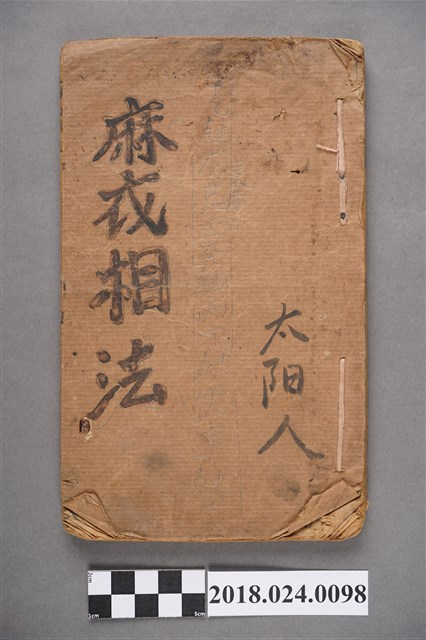 麻衣相法
太阳人
2cm
3cm
5cm
2018.024.0098